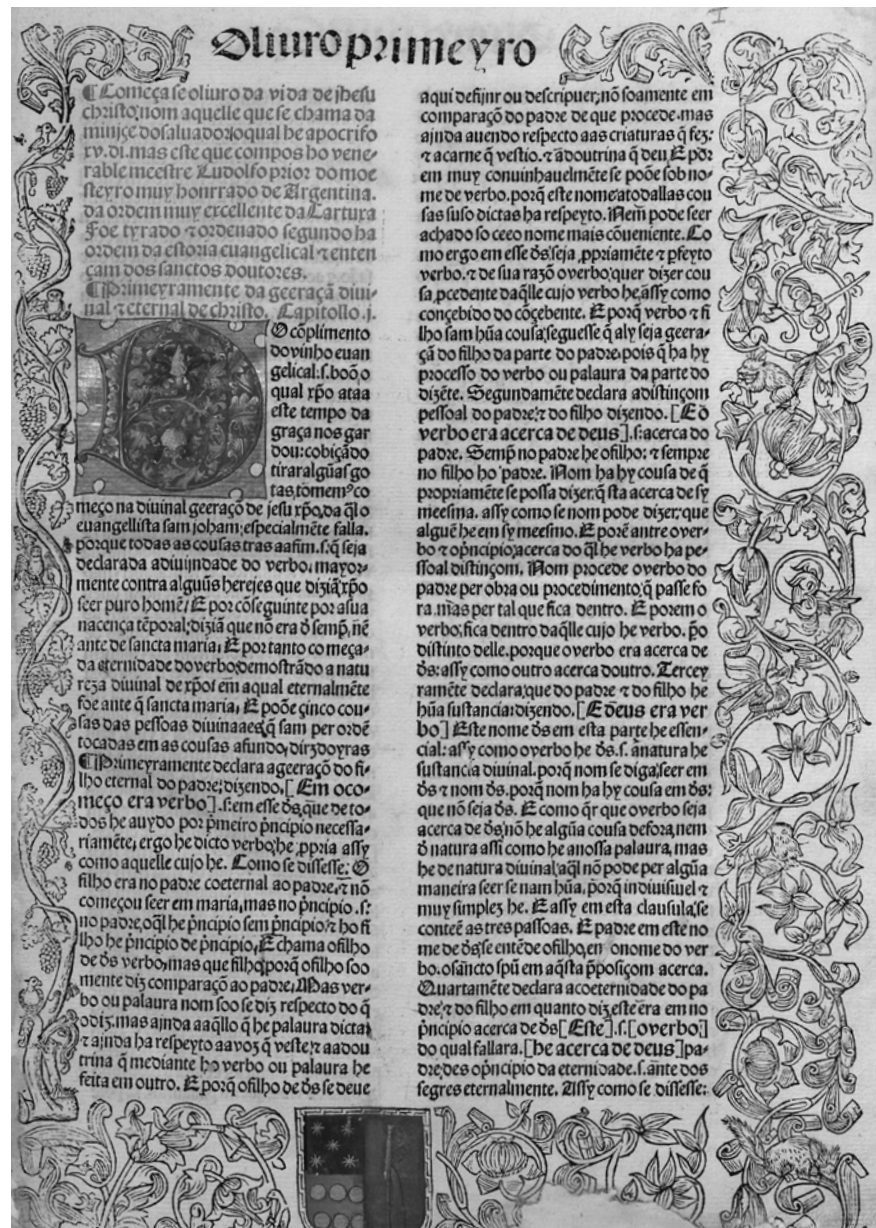 Oliuro primeyro
I
¶ Começa se oliuro da vida de jhesu
christo, nom aquelle que se chama da
minijçe do saluador, o qual he apocrifo
xv. di. mas este que compos ho vene-
rable meestre Ludolfo prior do moe
steyro muy honrrado de Argentina.
da ordem muy excellente da Cartuxa
Foe tyrado ⁊ ordenado segundo ha
ordem da estoria euangelical ⁊ enten
çam dos sanctos doutores.
¶ Primeyramente da geeraçã diui-
nal ⁊ eternal de christo. Capitollo .j.
DO cõplimento
do vinho euan
gelical: s. boõ, o
qual xp̃o ataa
este tempo da
graça nos gar
dou: cobiçãdo
tirar algũas go
tas, tomemꝰ co
meço na diuinal geeraçõ de jesu xp̃o, da q̃l o
euangellista sam joham, especialmẽte falla.
porque todas as cousas tras aafim. s. q̃ seja
declarada a diuijndade do verbo, mayor-
mente contra algũus herejes que diziã, xp̃o
seer puro homẽ, E por cõseguinte por a sua
nacença tẽporal, diziã que no era d̃ semp̃, nẽ
ante de sancta maria, E por tanto começa-
da eternidade do verbo, demostrãdo a natu
reza diuinal de xp̃o, em a qual eternalmẽte
foe ante q̃ sancta maria, E põoe çinco cou-
sas das pessoas diuinaaes, q̃ sam per ordẽ
tocadas em as cousas afundo, dirzdoyras
¶ Primeyramente declara a geeraçõ do fi-
lho eternal do padre, dizendo. [Em oco-
meço era verbo]. s. em esse d̃s, que de to-
dos he auydo por p̃meiro p̃ncipio necessa-
riamẽte, ergo he dicto verbo, he, ꝓpria assy
como aquelle cujo he. Como se dissesse: O
filho era no padre coeternal ao padre, ⁊ nõ
começou seer em maria, mas no p̃ncipio. s.
no padre, oq̃l he p̃ncipio sem p̃ncipio, ⁊ ho fi
lho he p̃ncipio de p̃ncipio, E chama o filho
de d̃s verbo, mas que filho, porq̃ o filho soo
mente diz comparaçõ ao padre, Mas ver-
bo ou palaura nom soo se diz respecto do q̃
o diz. mas ajnda aaq̃llo q̃ he palaura dicta,
⁊ ajnda ha respeyto aa voz q̃ veste, ⁊ aa dou
trina q̃ mediante ho verbo ou palaura he
feita em outro. E porq̃ o filho de d̃s se deue
aqui defijnr ou descripuer, nõ soamente em
comparaçõ do padre de que procede. mas
ajnda auendo respecto aas criaturas q̃ fez:
⁊ a carne q̃ vestio. ⁊ a doutrina q̃ deu, E por
em muy conuinhauelmẽte se põoe sob no-
me de verbo. porq̃ este nome a todallas cou
sas suso dictas ha respeyto. Nem pode seer
achado so ceeo nome mais cõueniente. Co
mo ergo em esse d̃s, seja, ꝓpriamẽte ⁊ ꝑfeyto
verbo. ⁊ de sua razõ o verbo, quer dizer cou
sa, ꝓcedente daq̃lle cujo verbo he, assy como
conçebido do cõçebente. E porq̃ verbo ⁊ fi
lho sam hũa cousa, seguesse q̃ aly seja geera-
çã do filho da parte do padre, pois q̃ ha hy
processo do verbo ou palaura da parte do
dizẽte. Segundamẽte declara a distinçom
pessoal do padre, ⁊ do filho dizendo. [E d̃
verbo era acerca de deus]. s. acerca do
padre. Semp̃ no padre he o filho: ⁊ sempre
no filho ho padre. Nom ha hy cousa de q̃
propriamẽte se possa dizer, q̃ sta acerca de sy
meesma. assy como se nom pode dizer, que
alguẽ he em sy meesmo. E porẽ antre o ver-
bo ⁊ o p̃ncipio, acerca do q̃l he verbo ha pe-
ssoal distinçom. Nom procede o verbo do
padre per obra ou procedimento, q̃ passe fo
ra. mas per tal que fica dentro. E porem o
verbo, fica dentro daq̃lle cujo he verbo. p̃o
distinto delle. porque o verbo era acerca de
d̃s: assy como outro acerca doutro. Tercey
ramẽte declara, que do padre ⁊ do filho he
hũa sustancia: dizendo. [E deus era ver
bo] Este nome d̃s em esta parte he essen-
cial: assy como o verbo he d̃s. s. a natura he
sustancia diuinal. porq̃ nom se diga, seer em
d̃s ⁊ nom d̃s. porq̃ nom ha hy cousa em d̃s:
que nõ seja d̃s. E como q̃r que o verbo seja
acerca de d̃s, nõ he algũa cousa de fora, nem
d̃ natura assi como he a nossa palaura, mas
he de natura diuinal, aq̃l nõ pode per algũa
maneira seer se nam hũa, porq̃ indiuisiuel ⁊
muy simplez he. E assy em esta clausula, se
conteẽ as tres passoas. E padre em este no
me de d̃s, se entẽde o filho, en o nome do ver
bo. o sãncto spũ em aq̃sta p̃posiçom acerca.
Quartamẽte declara a coeternidade do pa
dre, ⁊ do filho em quanto diz, este era em no
p̃ncipio acerca de d̃s [Este]. s. [o verbo]
do qual fallara. [he acerca de deus] pa-
dre, des o p̃ncipio da eternidade. s. ante dos
segres eternalmente. Assy como se dissesse: